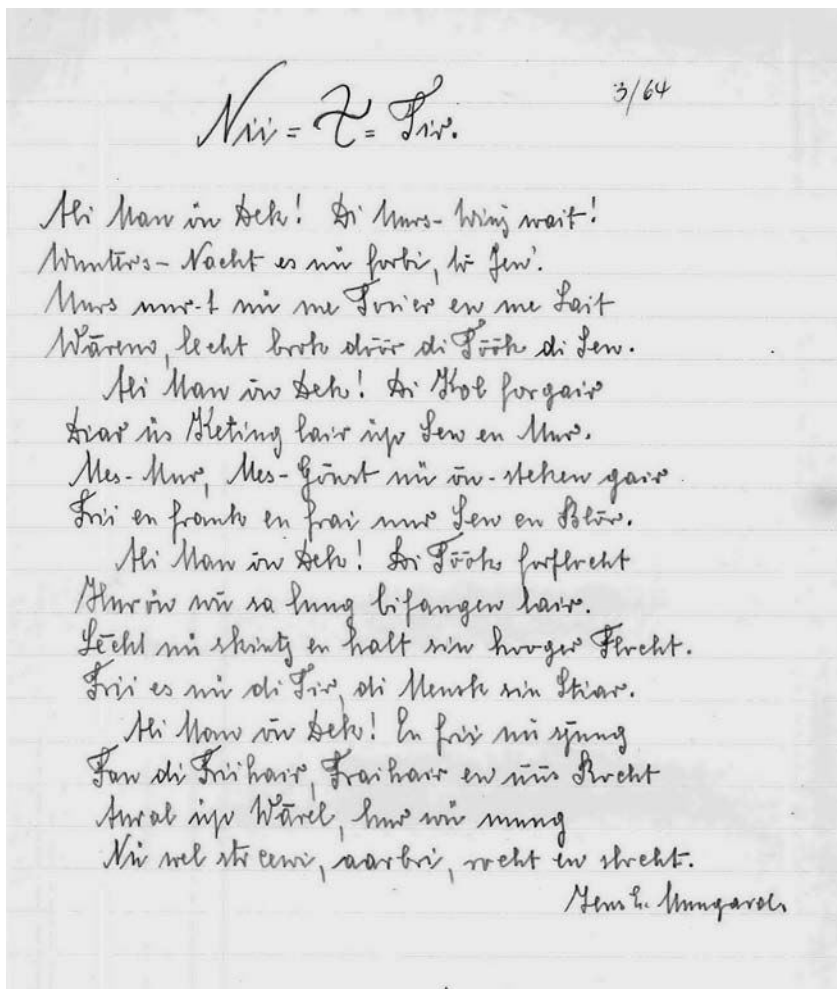 Nii = = Tir. 3/64
Ali Man ön Dek! Di Murs-Winj wait!
Wunters-Nacht es nü forbi, tö Jen'.
Murs uur-t nü me Toner en me Lait
Wārem, lecht brek döör di Töök di Sen.
Ali Man ön Dek! Di Kol forgair
Diar üs Keting lair üp Sen en Mur.
Mes-Mur, Mes-Gönst nü ön-steken gair
Frii en frank en frai uur Sen en Blör.
Ali Man ön Dek! Di Töök forflocht
Hurön wü sa lung bifangen lair.
Lecht nü skintj en halt sin hooger Flocht.
Frii es nü di Tir, di Mensk sin Stiar.
Ali Man ön Dek! En frii nü sjung
Fan di Friihair, Fraihair en üüs Rocht
Aural üp Wārel, hur wü mung
Nü wel streewi, aarbri, rocht en slocht.
Jens E. Mungard.